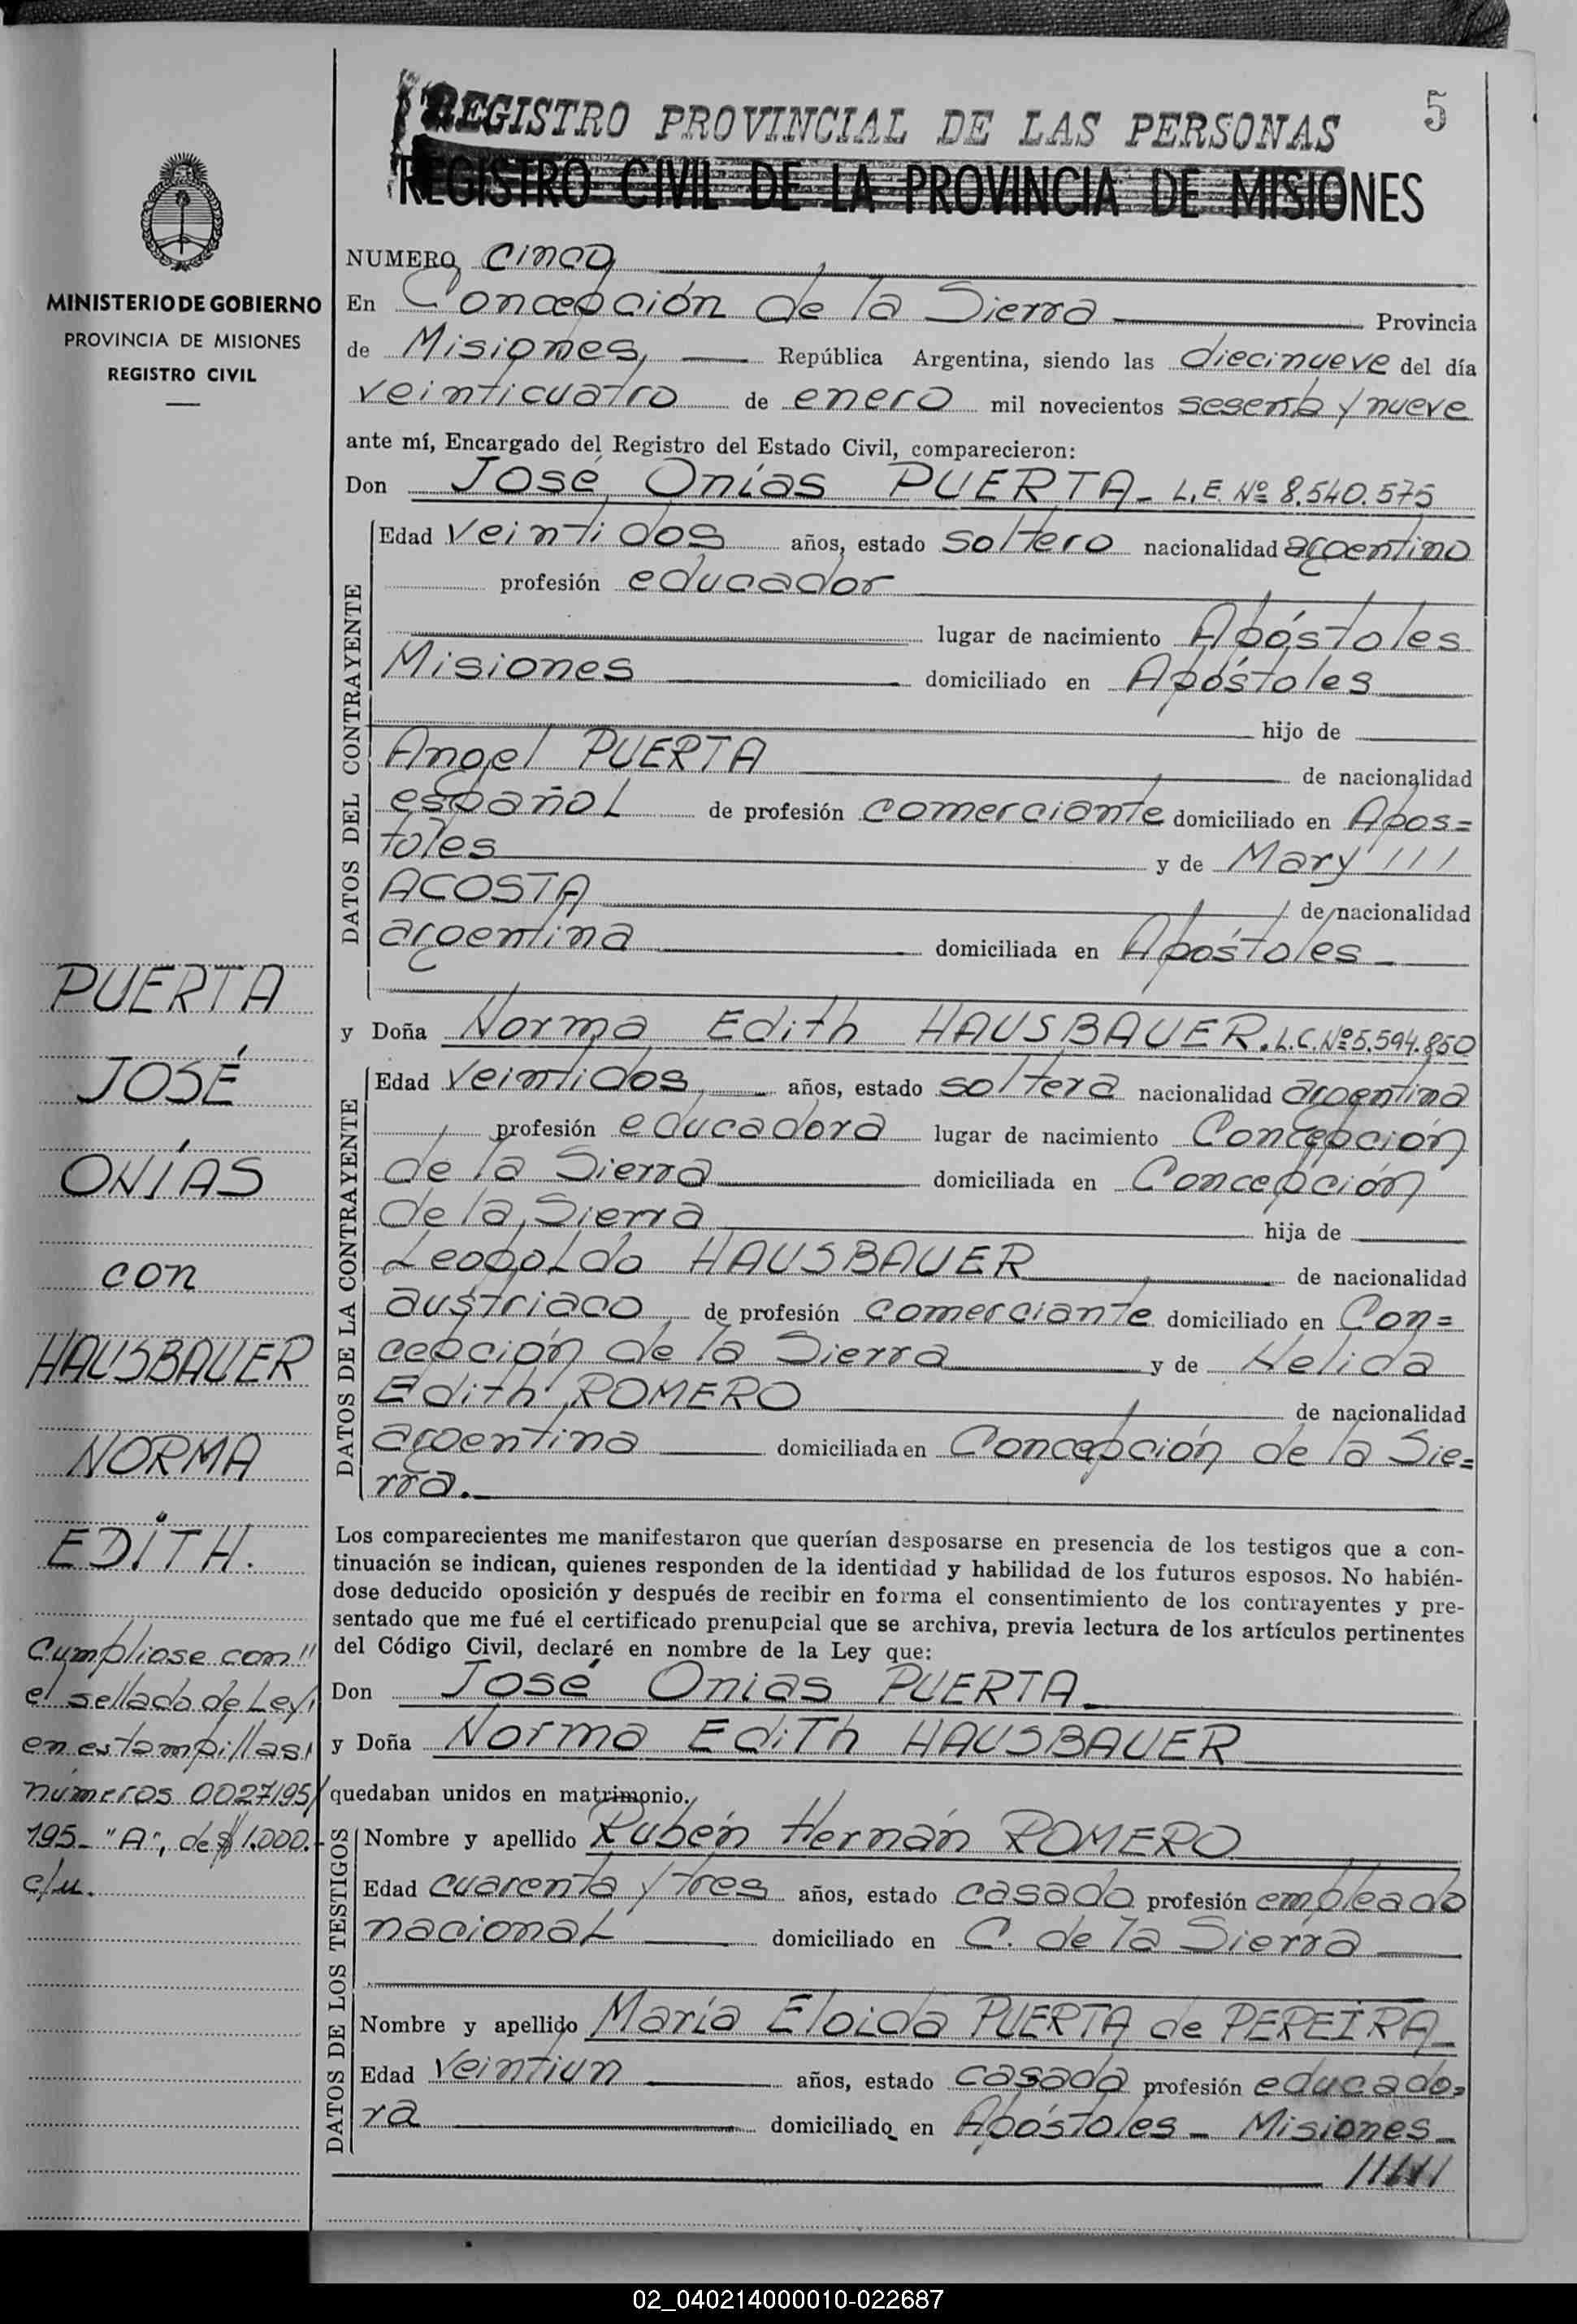 5
REGISTRO PROVINCIAL DE LAS PERSONAS
REGISTRO CIVIL DE LA PROVINCIA DE MISIONES
MINISTERIO DE GOBIERNO
PROVINCIA DE MISIONES
REGISTRO CIVIL
NUMERO cinco
En Concepción de la Sierra Provincia
de Misiones, República Argentina, siendo las diecinueve del día
veinticuatro de enero mil novecientos sesenta y nueve
ante mí, Encargado del Registro del Estado Civil, comparecieron:
Don José Onías PUERTA - L.E. Nº 8.540.575
DATOS DEL CONTRAYENTE
Edad veintidos años, estado soltero nacionalidad argentino
profesión educador
lugar de nacimiento Apóstoles
Misiones domiciliado en Apóstoles
hijo de
Angel PUERTA de nacionalidad
español de profesión comerciante domiciliado en Após=
toles y de Mary ///
ACOSTA de nacionalidad
argentina domiciliada en Apóstoles -
y Doña Norma Edith HAUSBAUER. L.C. Nº 5.594.860
DATOS DE LA CONTRAYENTE
Edad veintidos, años, estado soltera nacionalidad argentina
profesión educadora lugar de nacimiento Concepción
de la Sierra domiciliada en Concepción
de la Sierra hija de
Leopoldo HAUSBAUER de nacionalidad
austriaco de profesión comerciante domiciliado en Con=
cepción de la Sierra y de Helida
Edith ROMERO de nacionalidad
argentina domiciliada en Concepción de la Sie=
rra.
Los comparecientes me manifestaron que querían desposarse en presencia de los testigos que a con-
tinuación se indican, quienes responden de la identidad y habilidad de los futuros esposos. No habién-
dose deducido oposición y después de recibir en forma el consentimiento de los contrayentes y pre-
sentado que me fué el certificado prenupcial que se archiva, previa lectura de los artículos pertinentes
del Código Civil, declaré en nombre de la Ley que:
Don José Onias PUERTA
y Doña Norma Edith HAUSBAUER
quedaban unidos en matrimonio.
DATOS DE LOS TESTIGOS
Nombre y apellido Rubén Hernán ROMERO
Edad cuarenta y tres años, estado casado profesión empleado
nacional domiciliado en C. de la Sierra
Nombre y apellido María Eloida PUERTA de PEREIRA
Edad veintiun años, estado casada profesión educado=
ra domiciliado en Apóstoles - Misiones -
PUERTA
JOSÉ
ONÍAS
con
HAUSBAUER
NORMA
EDITH.
Cumpliose con //
el sellado de Ley,
en estampillas
números 0027195/
195- "A", de $ 1.000.-
c/u.
02_040214000010-022687